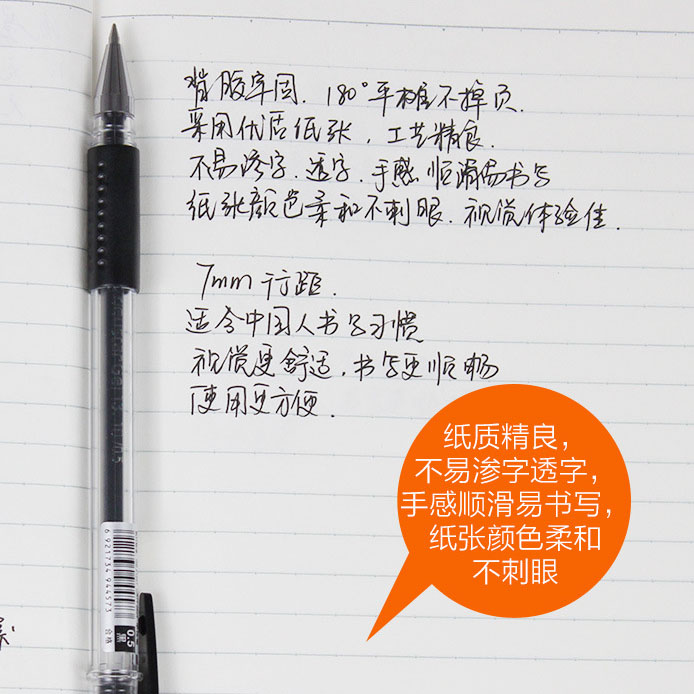 背胶牢固．180°平摊不掉页．
采用优质纸张，工艺精良．
不易渗字．透字．手感顺滑易书写
纸张颜色柔和不刺眼．视觉体验佳．
7mm行距．
适合中国人书写习惯
视觉更舒适，书写更顺畅
使用更方便．
纸质精良，
不易渗字透字，
手感顺滑易书写，
纸张颜色柔和
不刺眼
6921734944573
0.5
黑
合格